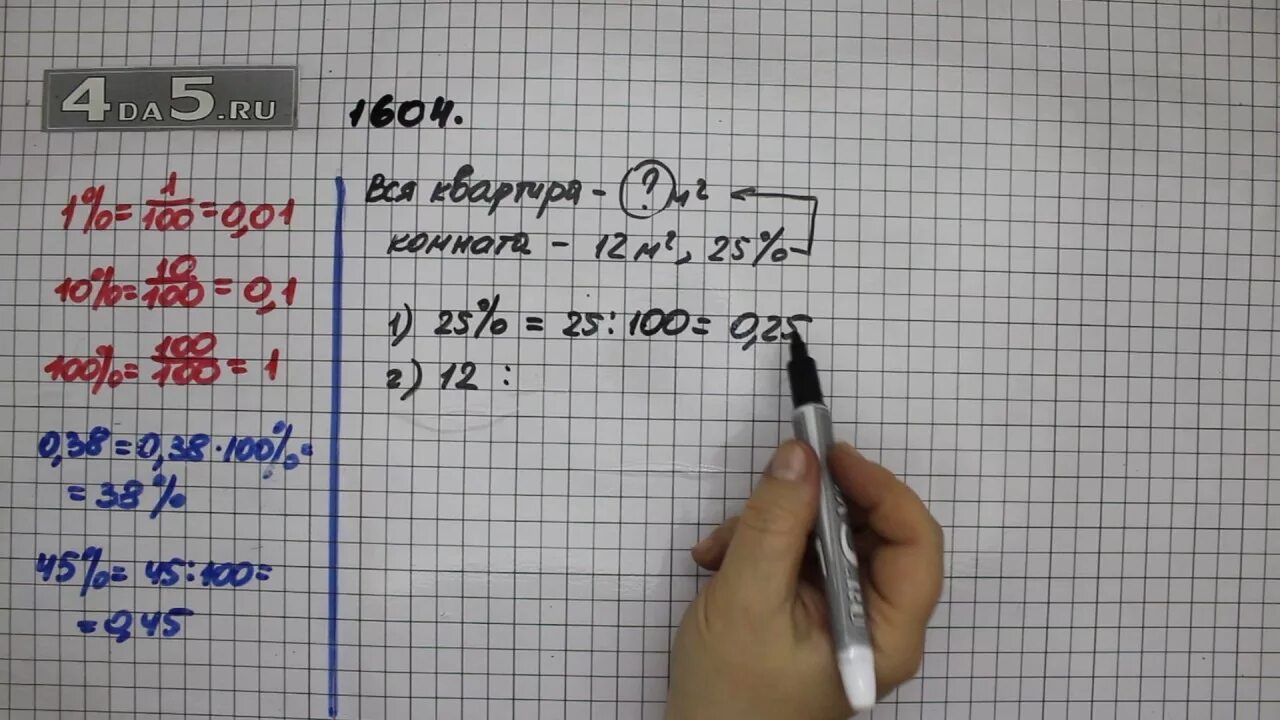 4DA5.RU
1604.
1% = 1/100 = 0,01
10% = 10/100 = 0,1
100% = 100/100 = 1
0,38 = 0,38·100% =
= 38%
45% = 45:100 =
= 0,45
Вся квартира - ? м²
комната - 12 м², 25%
1) 25% = 25:100 = 0,25
2) 12 :